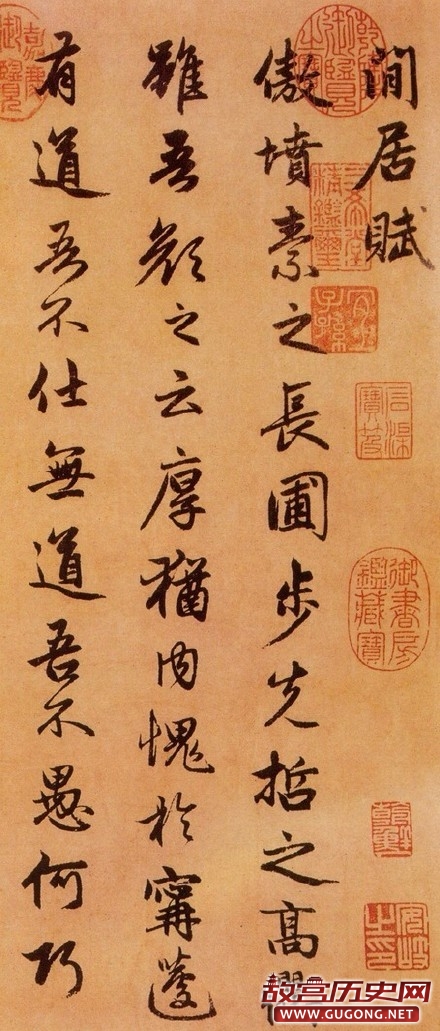 閒居賦
傲墳素之長圃步先哲之高衢
雖吾顏之云厚猶內愧於寗蘧
有道吾不仕無道吾不愚何巧
御書房鑑藏寶
故宫历史网
WWW.GUGONG.NET